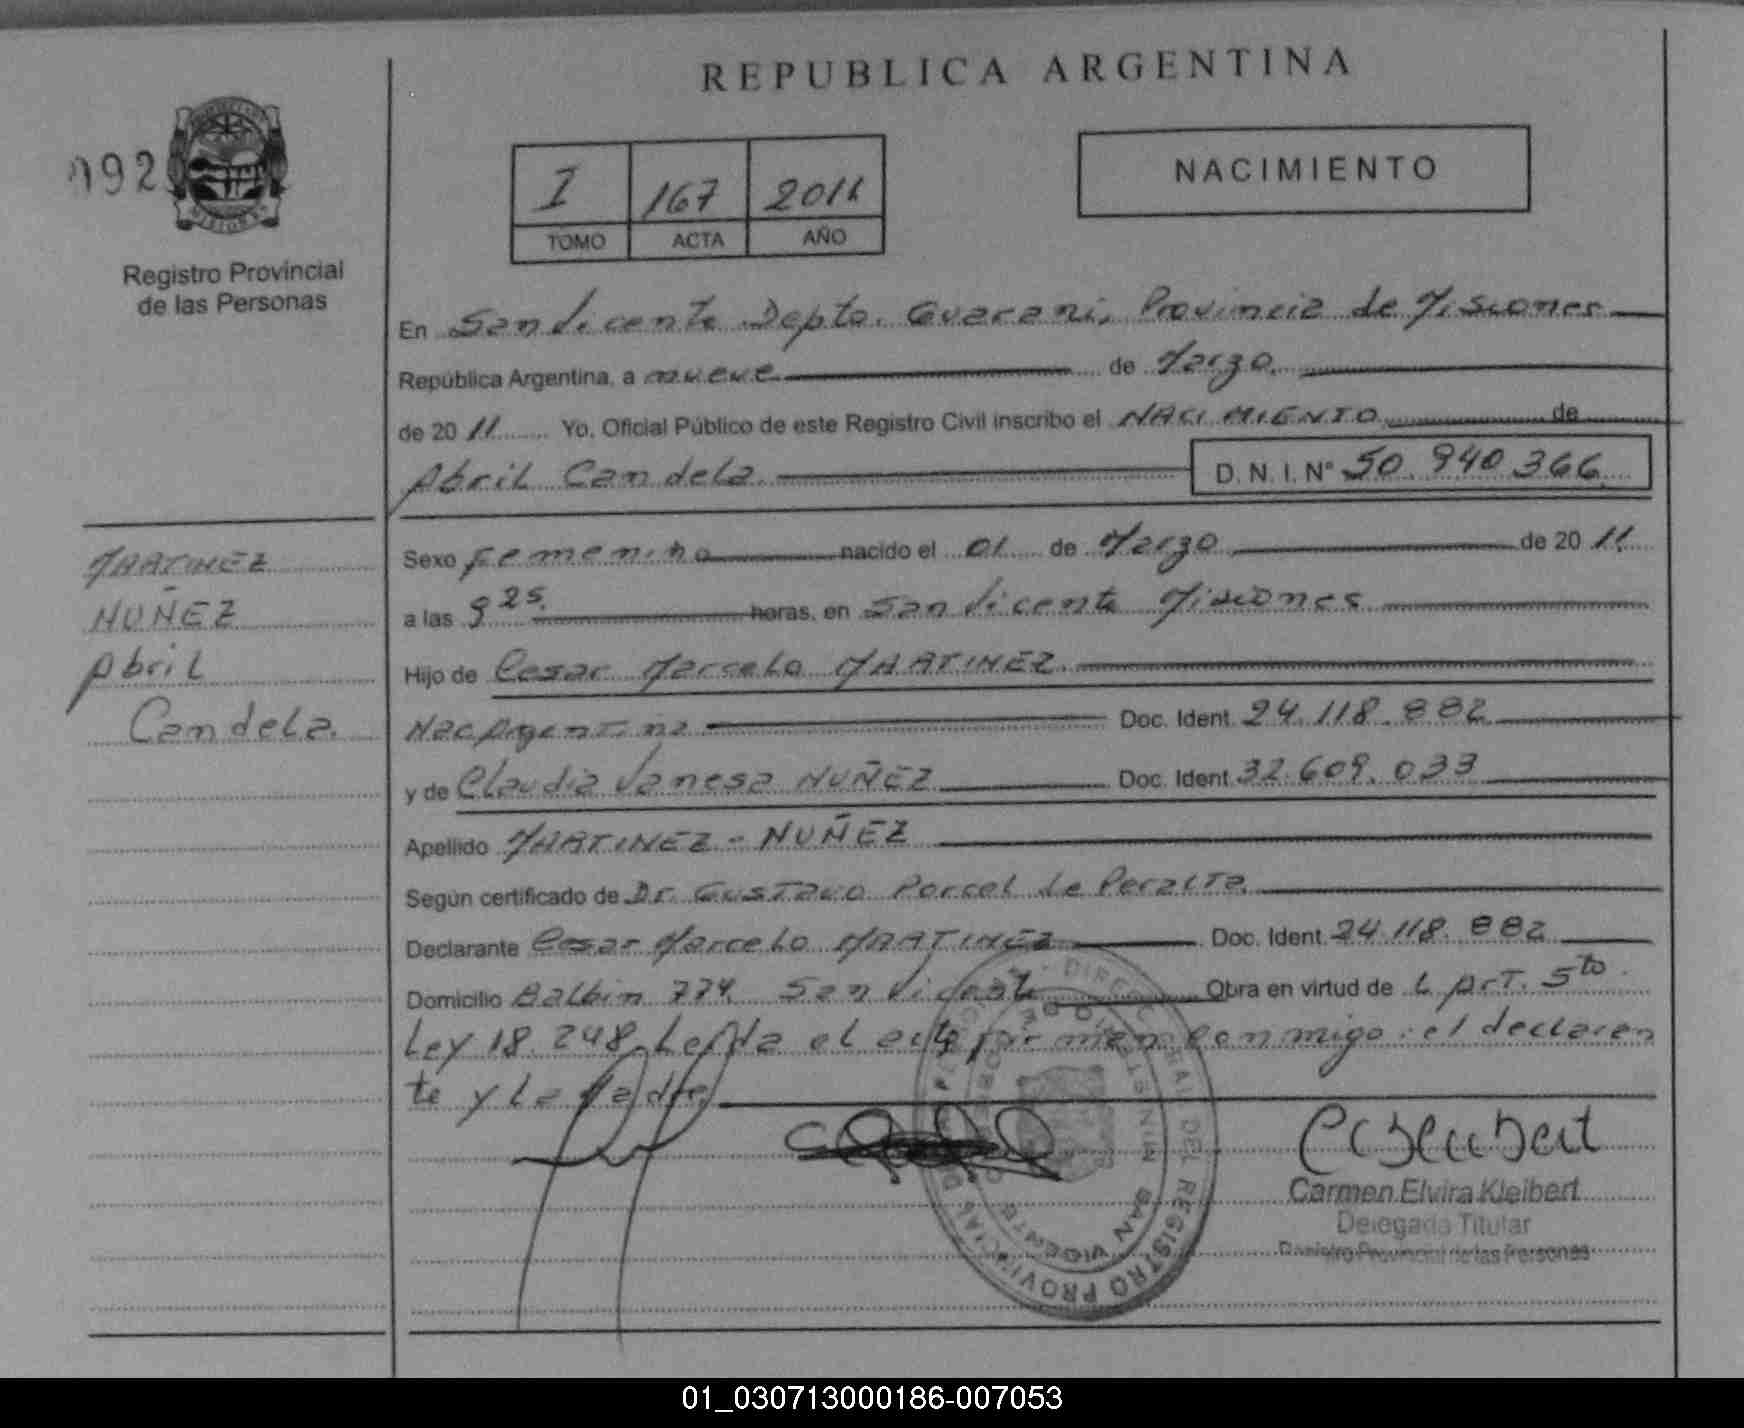 REPUBLICA ARGENTINA
092
MISIONES
Registro Provincial
de las Personas
I 167 2011
TOMO ACTA AÑO
NACIMIENTO
En San Vicente Depto. Guarani, Provincia de Misiones
República Argentina, a nueve de Marzo
de 2011 Yo, Oficial Público de este Registro Civil inscribo el NACIMIENTO de
Abril Candela D.N.I. Nº 50.940.366
MARTINEZ
NUÑEZ
Abril
Candela.
Sexo Femenino nacido el 01 de Marzo de 2011.
a las 9 25. horas, en San Vicente Misiones
Hijo de Cesar Marcelo MARTINEZ
Nac Argentina Doc. Ident. 24.118.882
y de Claudia Vanesa NUÑEZ Doc. Ident. 32.609.033
Apellido MARTINEZ - NUÑEZ
Según certificado de Dr. Gustavo Porcel de Peralta
Declarante Cesar Marcelo MARTINEZ Doc. Ident. 24.118.882
Domicilio Balbin 774 San Vicente Obra en virtud de L. Art. 5to.
Ley 18.248. Leida el acta firman conmigo: el declaran
te y La Madre.
REGISTRO PROVINCIAL
SAN VICENTE
Carmen Elvira Kleibert
Delegada Titular
Registro Provincial de las Personas
01_030713000186-007053